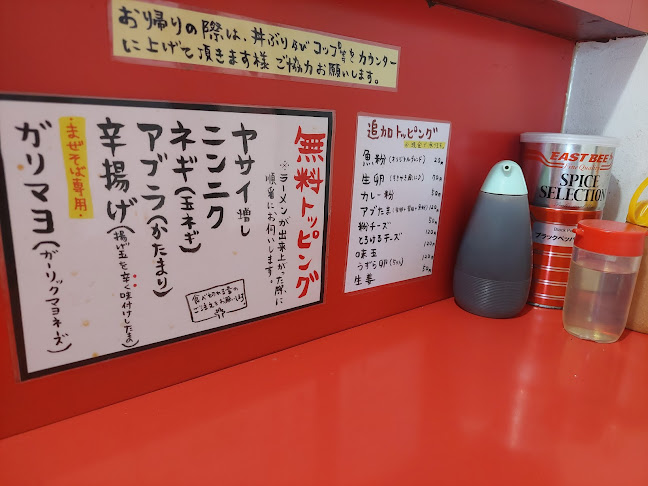 お帰りの際は、丼ぶり及びコップ等をカウンター
に上げて頂きます様ご協力お願いします。
無料トッピング
※ラーメンが出来上がった際に
順番にお伺いします。
ヤサイ増し
ニンニク
ネギ(玉ネギ)
アブラ(かたまり)
辛揚げ(揚げ玉を辛く味付けしたもの)
・まぜそば専用・
ガリマヨ(ガーリックマヨネーズ)
食べ切れる量の
ご注文をお願いします
追加トッピング
魚粉
生卵
カレー粉
アブたま
粉チーズ
とろけるチーズ
味玉
うずら卵
生姜
EASTBEE
SPICE
SELECTION
ブラックペッパー